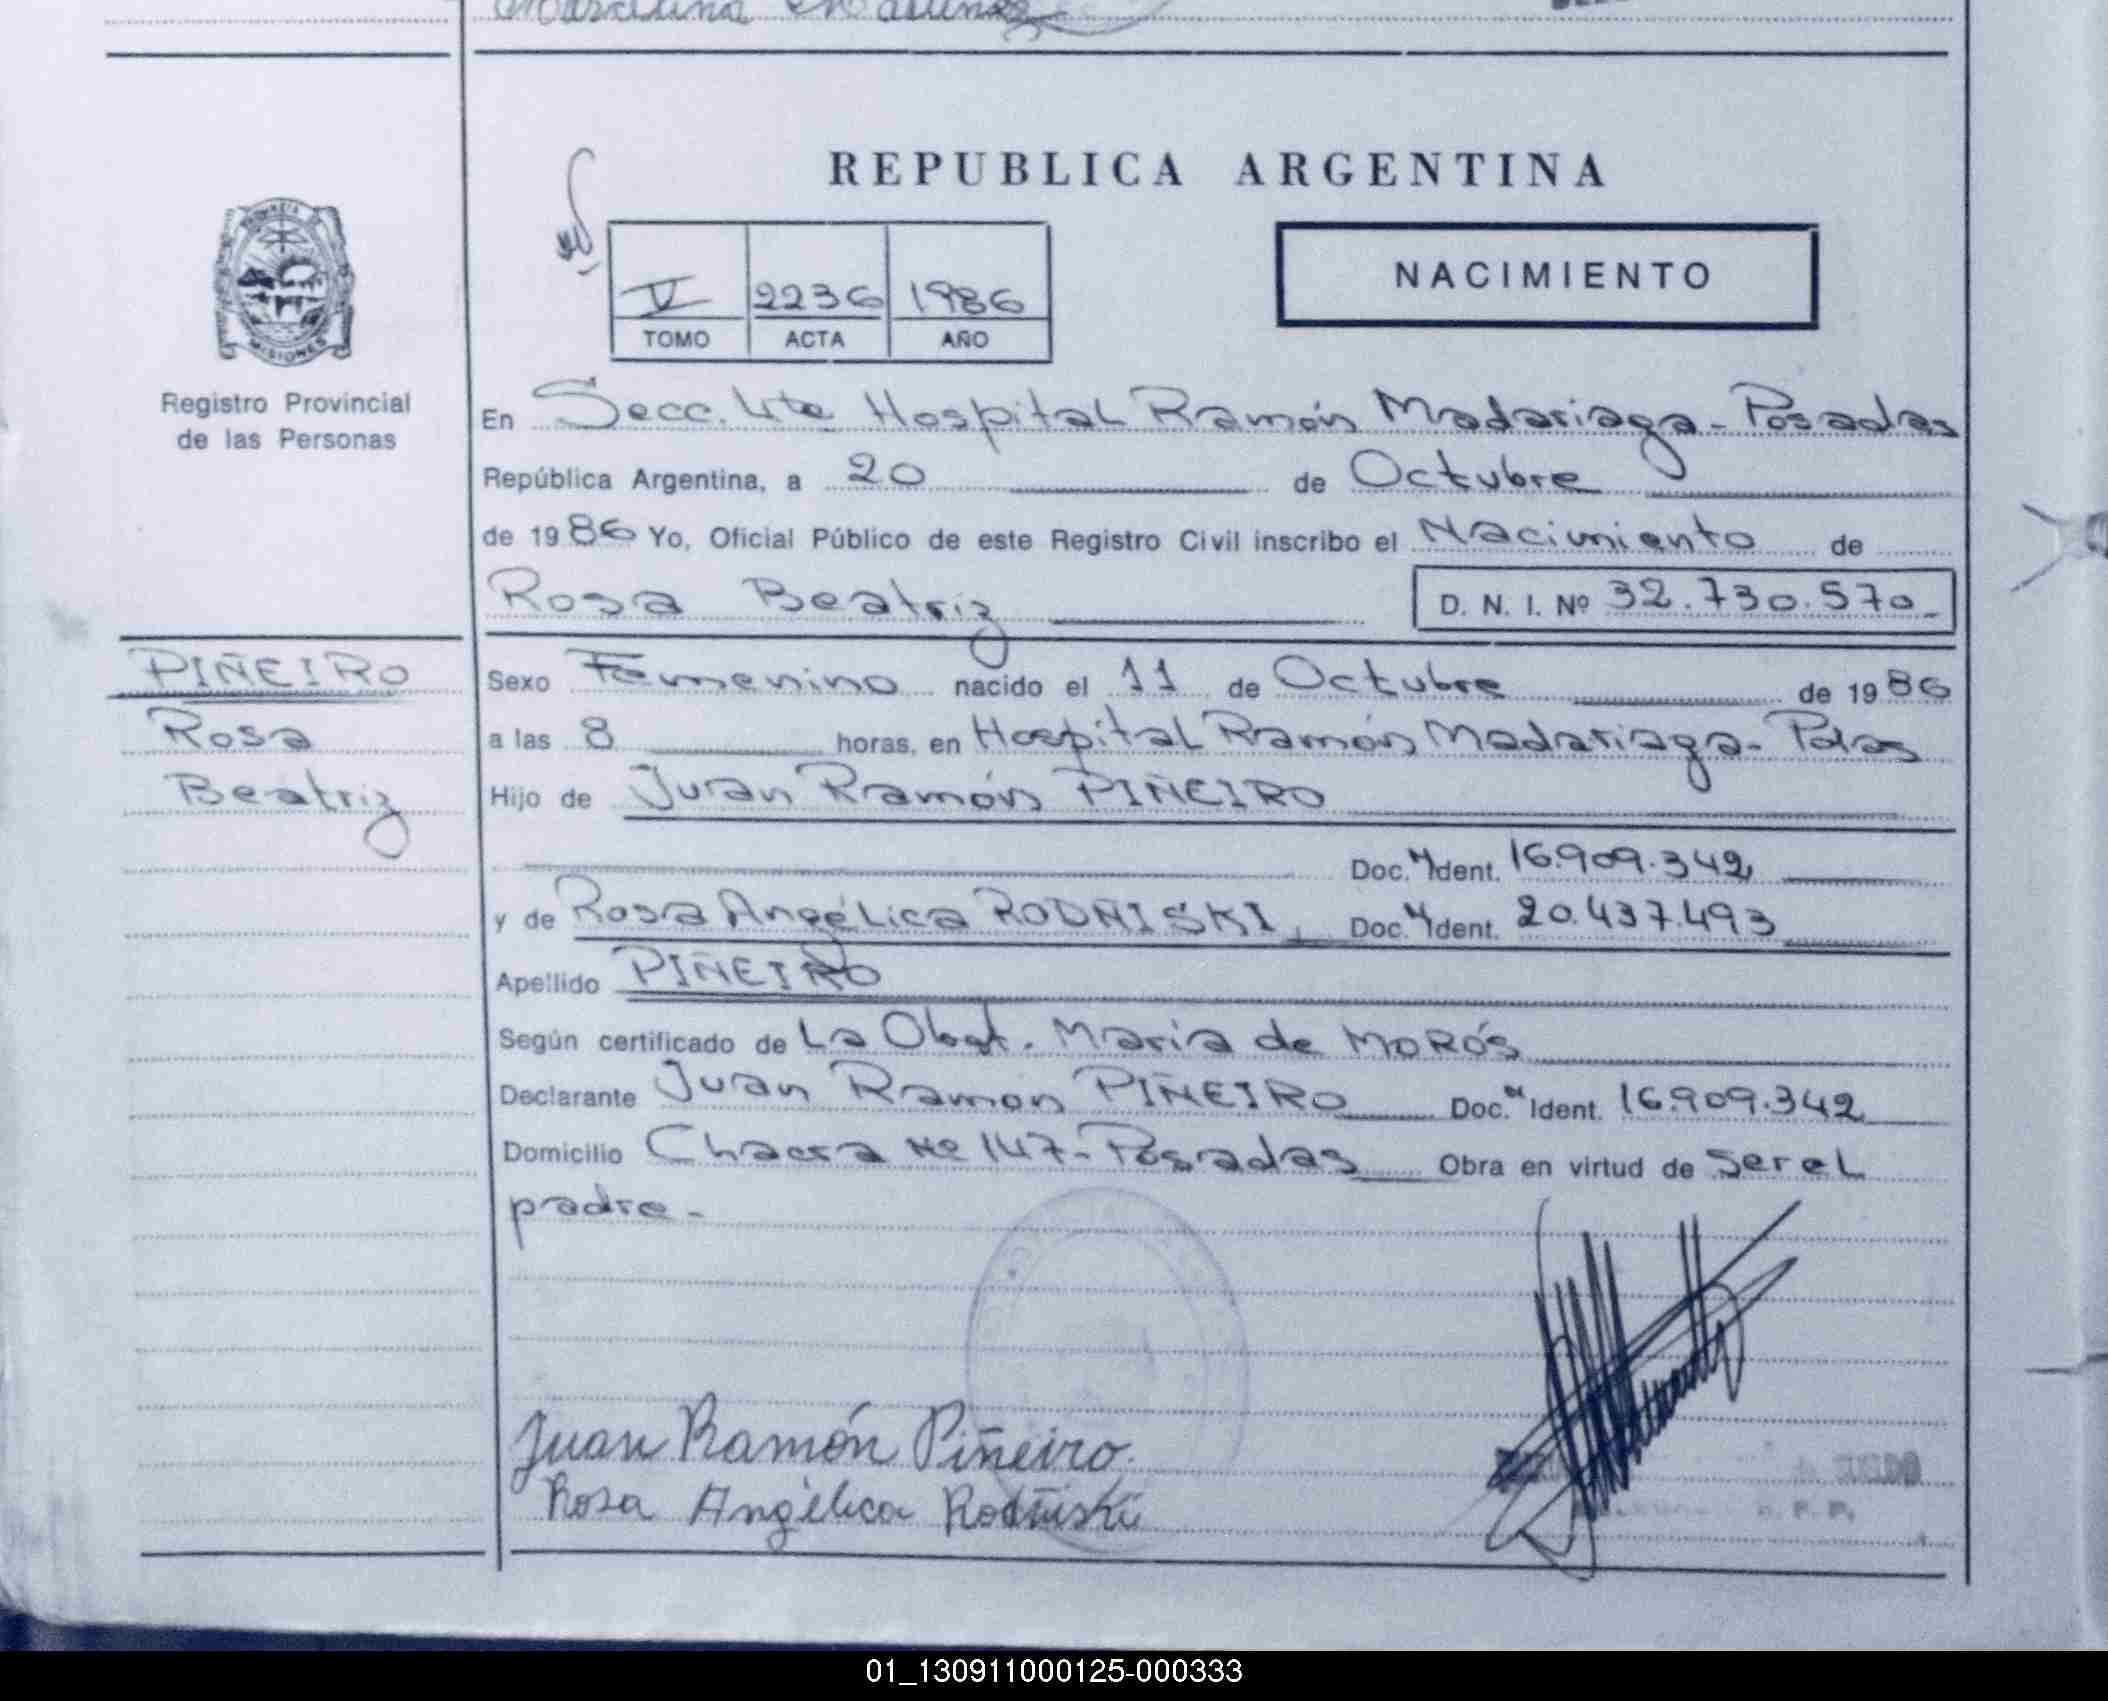 REPUBLICA ARGENTINA
NACIMIENTO
V 2236 1986
TOMO ACTA AÑO
PROVINCIA DE MISIONES
Registro Provincial
de las Personas
En Secc. 4ta Hospital Ramón Madariaga - Posadas
República Argentina, a 20 de Octubre
de 1986 Yo, Oficial Público de este Registro Civil inscribo el Nacimiento de
Rosa Beatriz D. N. I. Nº 32.730.570-
PIÑEIRO
Rosa
Beatriz
Sexo Femenino nacido el 11 de Octubre de 1986
a las 8 horas, en Hospital Ramón Madariaga - Pdas
Hijo de Juan Ramón PIÑEIRO
Doc. Ident. 16.909.342
y de Rosa Angélica RODÑISKI Doc. Ident. 20.437.493
Apellido PIÑEIRO
Según certificado de La Obst. María de MORÓS
Declarante Juan Ramon PIÑEIRO Doc. Ident. 16.909.342
Domicilio Chacra Nº 147 - Posadas Obra en virtud de ser el
padre -
Juan Ramón Piñeiro.
Rosa Angélica Rodñiski
01_130911000125-000333